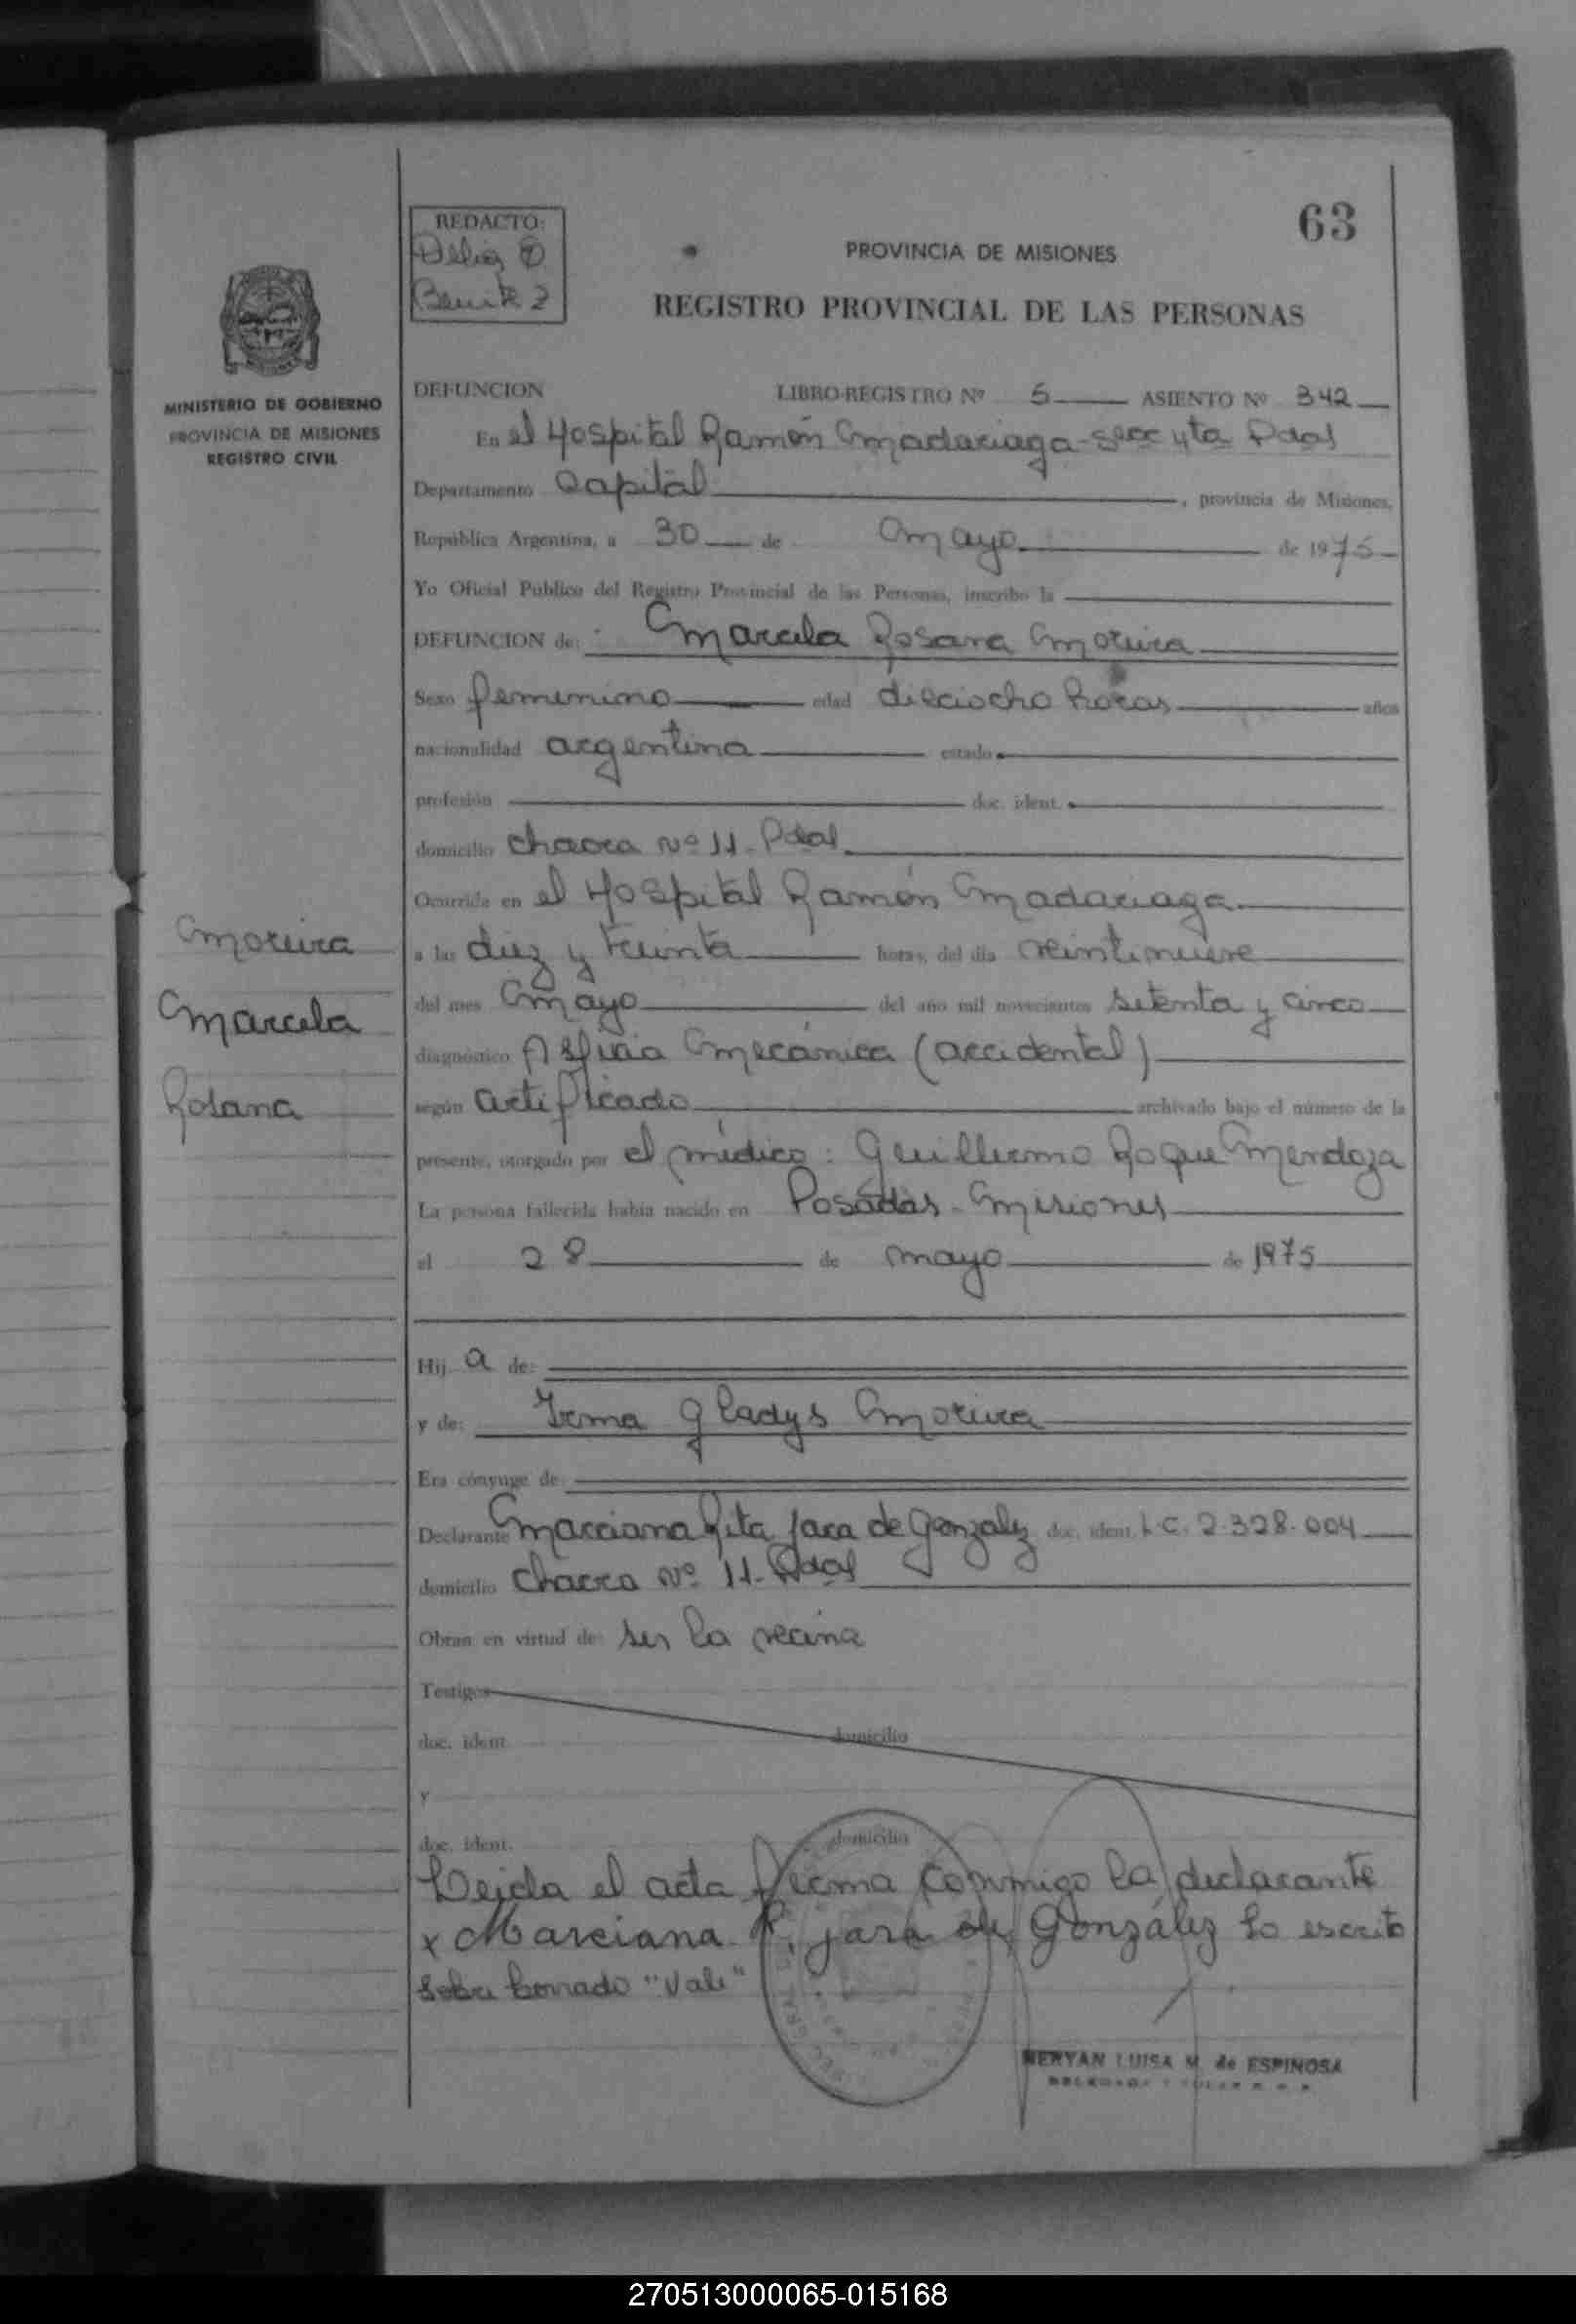 63
REDACTO:
Delia
Benitez
PROVINCIA DE MISIONES
REGISTRO PROVINCIAL DE LAS PERSONAS
MINISTERIO DE GOBIERNO
PROVINCIA DE MISIONES
REGISTRO CIVIL
DEFUNCION LIBRO-REGISTRO Nº 5 ASIENTO Nº 342
En el Hospital Ramón Madariaga - secc 4ta Pdas
Departamento Capital, provincia de Misiones,
República Argentina, a 30 de Mayo de 1975
Yo Oficial Público del Registro Provincial de las Personas, inscribo la
DEFUNCION de: Marcela Rosana Moreira
Sexo femenino edad dieciocho horas años
nacionalidad argentina estado
profesión doc. ident.
domicilio chacra Nº 11 - Pdas
Ocurrida en el Hospital Ramón Madariaga
a las diez y treinta horas, del día veintinueve
del mes Mayo del año mil novecientos setenta y cinco
diagnóstico Asfixia Mecánica (accidental)
según certificado archivado bajo el número de la
presente, otorgado por el médico: Guillermo Roque Mendoza
La persona fallecida había nacido en Posadas - Misiones
el 28 de mayo de 1975
Hij a de:
y de: Irma Gladys Moreira
Era cónyuge de
Declarante Marciana Rita Jara de Gonzalez doc. ident. L.C. 2.328.004
domicilio Chacra Nº 11 - Pdas
Obran en virtud de ser la vecina
Testigos
doc. ident. domicilio
y
doc. ident. domicilio
Leida el acta firma conmigo la declarante
x Marciana R. jara de González lo escrito
sobre borrado "Vale"
Moreira
Marcela
Rosana
NERYAN LUISA M. de ESPINOSA
270513000065-015168